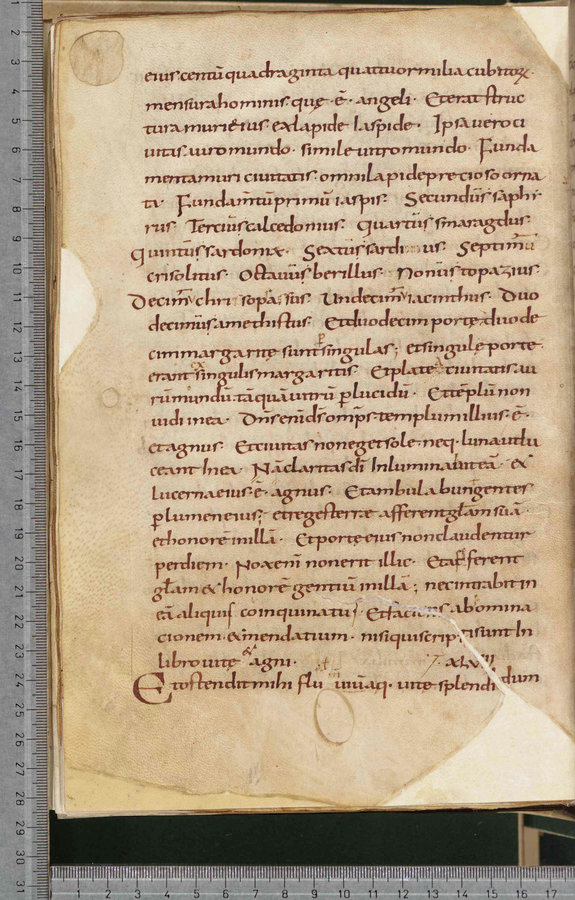 eius centū quadraginta quattuor milia cubitorꝝ.
mensura hominis que · ē · angeli · Et erat struc
tura muri eius ex lapide Iaspide · Ipsa vero ci
uitas auro mundo · simile uitro mundo · Funda
menta muri ciuitatis · omni lapide precioso orna
ta · Fundam̄tū primū iaspis · Secundus saphi
rus · Tercius calcedonius · Quartus smaragdus ·
Quintus sardonix · Sextus sardi us · Septimū
crisolitus · Octauus berillus · Nonus topazius ·
Decim chri sopassus · Undecim iacinthus · Duo
decimus amethistus · Et duodecim porte duode
cim margarite sunt singulas ; et singule porte
erant singulis margaritis · Et plate ciuitatis au
rū mundū · tā quā uitrū ꝑlucidū · Et tēplū non
uidi in ea · Dn̄s enī ds̄ omp̄s templum illius · ē ·
et agnus · Et ciuitas non eget sole · neq · luna ut lu
ceant In ea · Nā claritas dī Inluminabit eā · et
lucerna eius · ē · agnus · Et ambulabunt gentes
ꝑ lumen eius ; et reges terrae afferent glām suā ·
et honorē in illā · Et porte eius non claudentur
per diem · Nox enī non erit illic · Et afferent
glām et honorē gentiū in illā ; nec intrabit in
eā aliquis coinquinatus · Et faciens abomina
cionem · et mendatium · nisi qui scrip ti sunt In
libro uite et agni · XLVIII
Et ostendit mihi flu iuū aq · uite splendi dum